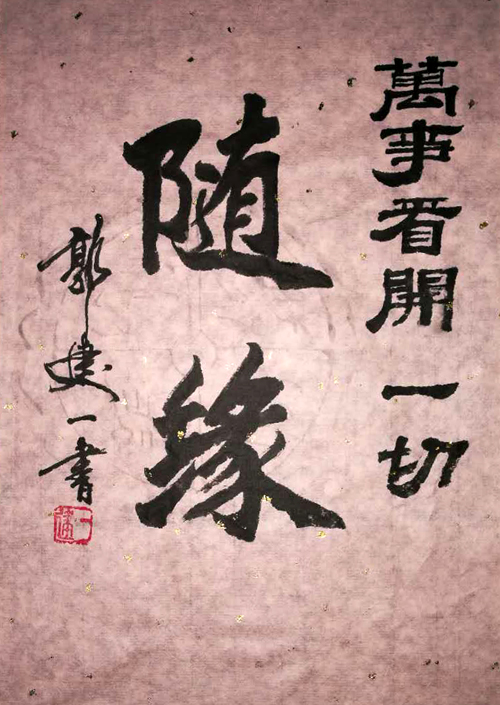 萬事看開一切
随缘
郭建一書